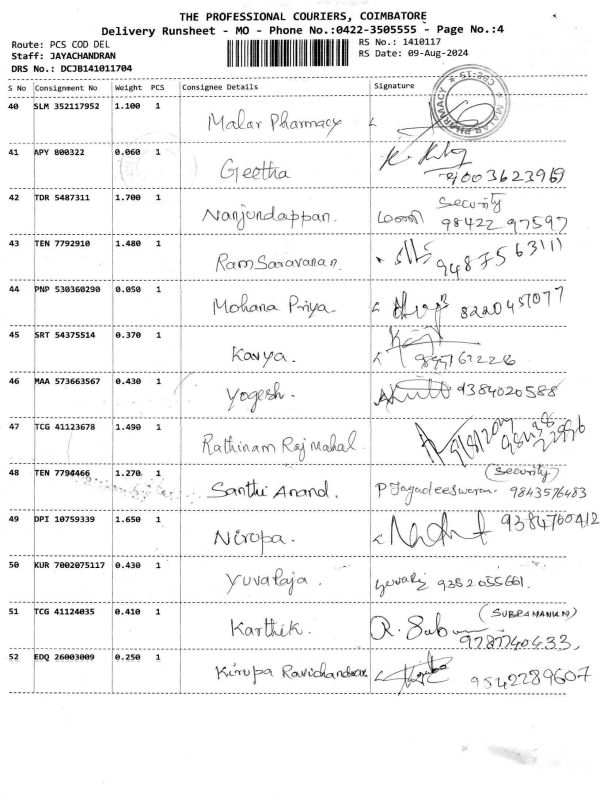 THE PROFESSIONAL COURIERS, COIMBATORE
Delivery Runsheet - MO - Phone No.:0422-3505555 - Page No.:4
Route: PCS COD DEL RS No.: 1410117
Staff: JAYACHANDRAN RS Date: 09-Aug-2024
DRS No.: DCJB141011704
S No Consignment No Weight PCS Consignee Details Signature
MALAR PHARMACY
40 SLM 352117952 1.100 1 Malar Pharmacy
41 APY 800322 0.060 1 Geetha
9003623969
42 TDR 5487311 1.700 1 Nanjundappan. Security
98422 97597
43 TEN 7792910 1.480 1 Ram Saravanan. 9487563111
44 PNP 530360290 0.050 1 Mohana Priya. 8220457077
45 SRT 54375514 0.370 1 Kavya.
46 MAA 573663567 0.430 1 Yogesh. 9384020588
47 TCG 41123678 1.490 1 Rathinam Raj Mahal.
48 TEN 7794466 1.270 1 Santhi Anand. (Security)
P Jagadeeswaran. 9843576483
49 DPI 10759339 1.650 1 Nirupa. 9384760412
50 KUR 7002075117 0.430 1 Yuvaraja. 9352055661.
51 TCG 41124035 0.410 1 Karthik. (SUBRAMANIAM)
R. Subu
9787740433,
52 EDQ 26003009 0.250 1 Kirupa Ravichandran. 9542289607